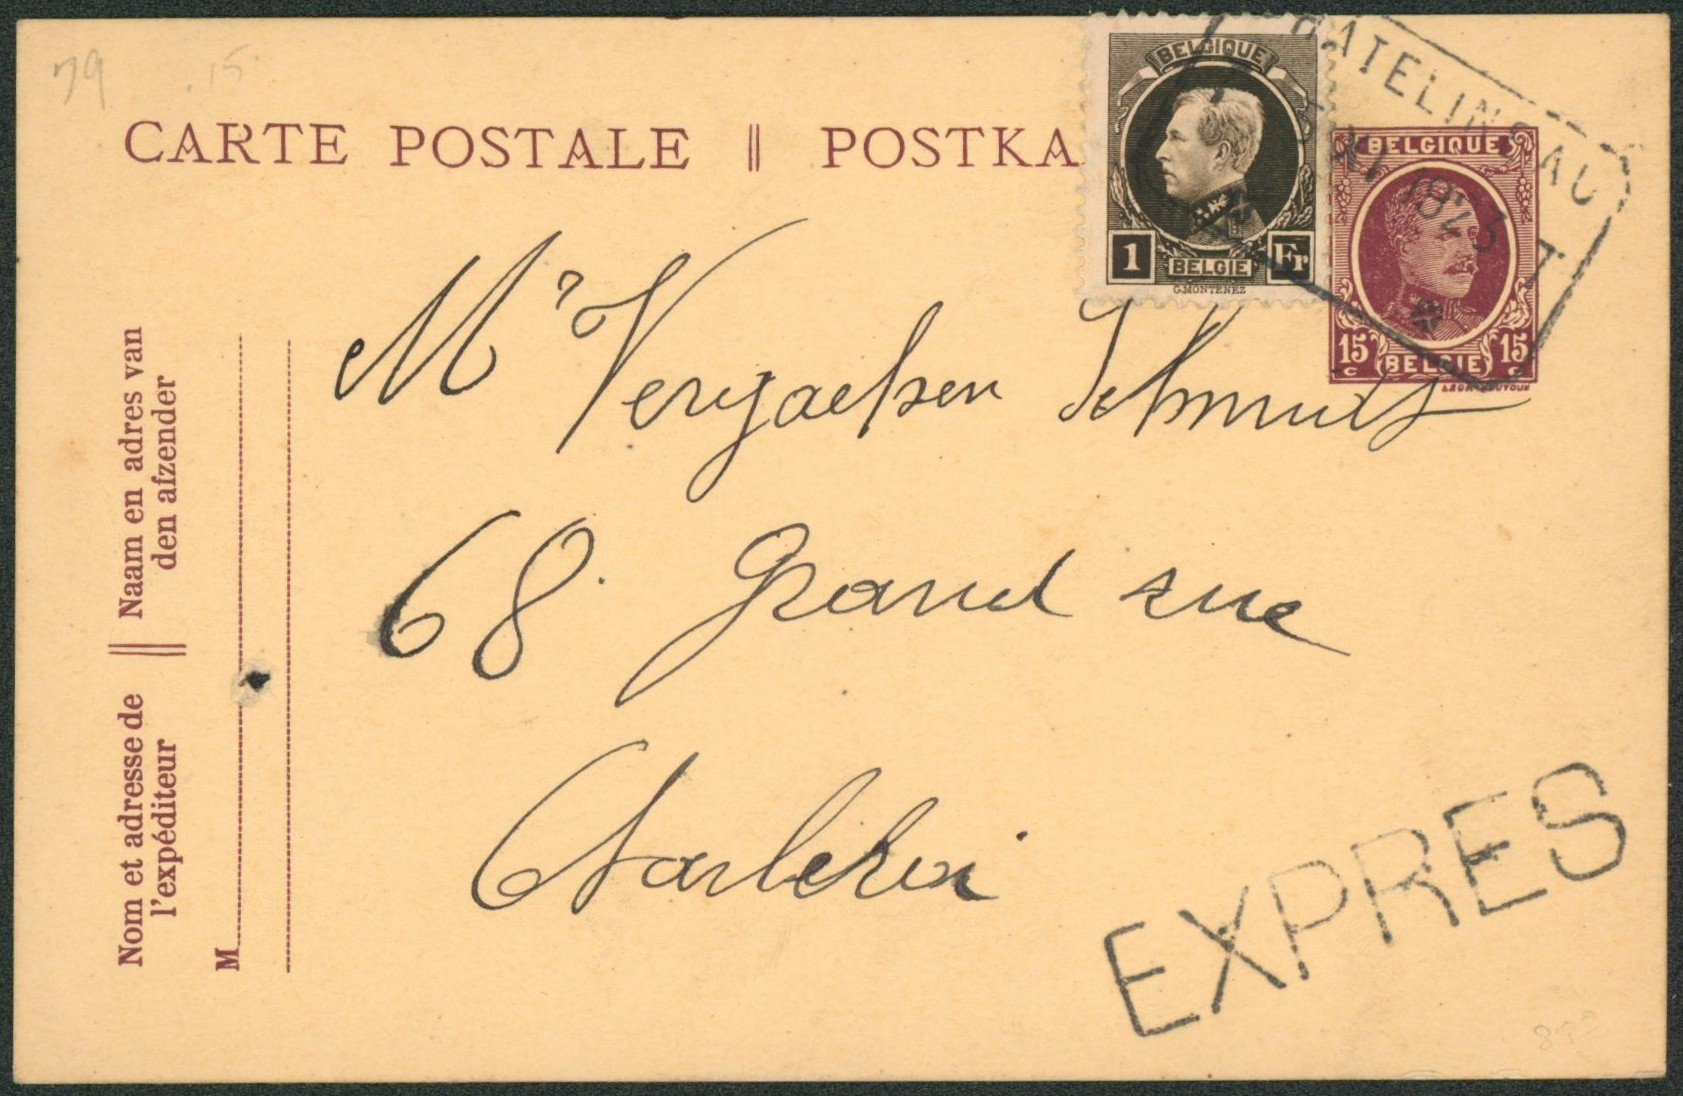 79 15
CARTE POSTALE || POSTKA
BELGIQUE
1 Fr
BELGIE
G.MONTENEZ
CHATELINEAU
XI 1923
BELGIQUE
15 c 15 c
BELGIE
Mr Vergaelsen Schmidt
68. Grand rue
Charleroi
EXPRES
Naam en adres van
den afzender
Nom et adresse de
l'expéditeur
M